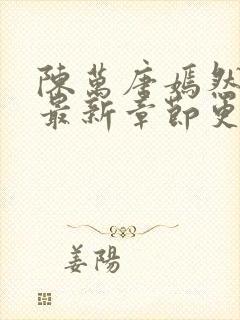 陳萬唐嫣然
最新章節更
姜陽